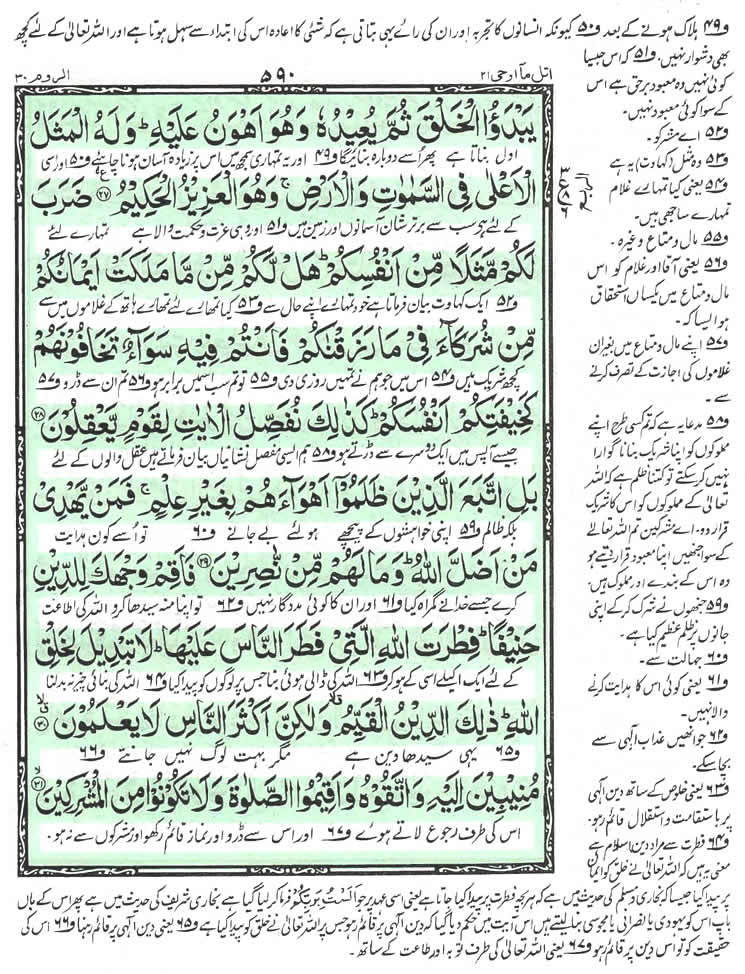 و۴۹ ہلاک ہونے کے بعد و۵۰ کیونکہ انسانوں کا تجربہ اور ان کی رائے یہی بتاتی ہے کہ شئی کا اعادہ اس کی ابتداء سے سہل ہوتا ہے اور اللہ تعالیٰ کے لئے کچھ
بھی دشوار نہیں۔ و۵۱ کہ اس جیسا
اتل مآ اوحی ۲۱ ۵۹۰ الروم ۳۰
يَبْدَؤُا الْخَلْقَ ثُمَّ يُعِيْدُهٗ وَهُوَ اَهْوَنُ عَلَيْهِ ؕ وَلَهُ الْمَثَلُ
اول بناتا ہے پھر اُسے دوبارہ بنائیگا و۴۹ اور یہ تمہاری سمجھ میں اس پر زیادہ آسان ہونا چاہئے و۵۰ اور اسی
الْاَعْلٰى فِى السَّمٰوٰتِ وَالْاَرْضِ ۚ وَهُوَ الْعَزِيْزُ الْحَكِيْمُ ﴿۲۷﴾ ضَرَبَ
کے لئے ہے سب سے برتر شان آسمانوں اور زمین میں و۵۱ اور وہی عزت و حکمت والا ہے تمہارے لئے
لَكُمْ مَّثَلًا مِّنْ اَنْفُسِكُمْ ؕ هَلْ لَّكُمْ مِّنْ مَّا مَلَكَتْ اَيْمَانُكُمْ
و۵۲ ایک کہاوت بیان فرماتا ہے خود تمہارے اپنے حال سے و۵۳ کیا تمھارے لئے تمھارے ہاتھ کے غلاموں میں سے
مِّنْ شُرَكَآءَ فِىْ مَا رَزَقْنٰكُمْ فَاَنْتُمْ فِيْهِ سَوَآءٌ تَخَافُوْنَهُمْ
کچھ شریک ہیں و۵۴ اس میں جو ہم نے تمہیں روزی دی و۵۵ تو تم سب اسمیں برابر ہو و۵۶ تم ان سے ڈرو و۵۷
كَخِيْفَتِكُمْ اَنْفُسَكُمْ ؕ كَذٰلِكَ نُفَصِّلُ الْاٰيٰتِ لِقَوْمٍ يَّعْقِلُوْنَ ﴿۲۸﴾
جیسے آپس میں ایک دوسرے سے ڈرتے ہو و۵۸ ہم ایسی مفصل نشانیاں بیان فرماتے ہیں عقل والوں کے لئے
بَلِ اتَّبَعَ الَّذِيْنَ ظَلَمُوْٓا اَهْوَآءَهُمْ بِغَيْرِ عِلْمٍ ۚ فَمَنْ يَّهْدِىْ
بلکہ ظالم و۵۹ اپنی خواہشوں کے پیچھے ہو لئے بے جانے و۶۰ تو اُسے کون ہدایت
مَنْ اَضَلَّ اللّٰهُ ؕ وَمَا لَهُمْ مِّنْ نّٰصِرِيْنَ ﴿۲۹﴾ فَاَقِمْ وَجْهَكَ لِلدِّيْنِ
کرے جسے خدا نے گمراہ کیا و۶۱ اور ان کا کوئی مددگار نہیں و۶۲ تو اپنا منہ سیدھا کرو اللہ کی اطاعت
حَنِيْفًا ؕ فِطْرَتَ اللّٰهِ الَّتِىْ فَطَرَ النَّاسَ عَلَيْهَا ؕ لَا تَبْدِيْلَ لِخَلْقِ
کے لئے ایک اکیلے اسی کے ہو کر و۶۳ اللہ کی ڈالی ہوئی بنا جس پر لوگوں کو پیدا کیا و۶۴ اللہ کی بنائی چیز نہ بدلنا
اللّٰهِ ؕ ذٰلِكَ الدِّيْنُ الْقَيِّمُ ۙ وَلٰكِنَّ اَكْثَرَ النَّاسِ لَا يَعْلَمُوْنَ ﴿۳۰﴾
و۶۵ یہی سیدھا دین ہے مگر بہت لوگ نہیں جانتے و۶۶
مُنِيْبِيْنَ اِلَيْهِ وَاتَّقُوْهُ وَاَقِيْمُوا الصَّلٰوةَ وَلَا تَكُوْنُوْا مِنَ الْمُشْرِكِيْنَ ﴿۳۱﴾
اس کی طرف رجوع لاتے ہوے و۶۷ اور اس سے ڈرو اور نماز قائم رکھو اور مشرکوں سے نہ ہو۔
کوئی نہیں وہ معبود برحق ہے اس
کے سوا کوئی معبود نہیں۔
و۵۲ اے مشرکو۔
و۵۳ وہ مثل (کہاوت) یہ ہے
و۵۴ یعنی کیا تمہارے غلام
تمہارے ساجھی ہیں۔
و۵۵ مال و متاع وغیرہ۔
و۵۶ یعنی آقا اور غلام کو اس
مال و متاع میں یکساں استحقاق
ہو ایسا کہ۔
و۵۷ اپنے مال و متاع میں بغیر ان
غلاموں کی اجازت کے تصرف کرنے
سے۔
و۵۸ مدعا یہ ہے کہ تم کسی طرح اپنے
مملوکوں کو اپنا شریک بنانا گوارا
نہیں کر سکتے تو کتنا ظلم ہے کہ اللہ
تعالیٰ کے مملوکوں کو اس کا شریک
قرار دو۔ اے مشرکین تم اللہ تعالےٰ
کے سوا جنھیں اپنا معبود قرار دیتے ہو
وہ اس کے بندے اور مملوک ہیں۔
و۵۹ جنھوں نے شرک کر کے اپنی
جانوں پر ظلم عظیم کیا ہے۔
و۶۰ جہالت سے۔
و۶۱ یعنی کوئی اس کا ہدایت کرنے
والا نہیں۔
و۶۲ جو انھیں عذاب الٰہی سے
بچا سکے۔
و۶۳ یعنی خلوص کے ساتھ دین الٰہی
پر باستقامت و استقلال قائم رہو۔
و۶۴ فطرت سے مراد دین اسلام ہے
معنی یہ ہیں کہ اللہ تعالیٰ نے خلق کو ایمان
پر پیدا کیا جیسا کہ بخاری و مسلم کی حدیث میں ہے کہ ہر بچہ فطرت پر پیدا کیا جاتا ہے یعنی اسی عہد پر جو اَلَسْتُ بِرَبِّكُمْ فرما کر لیا گیا ہے بخاری شریف کی حدیث میں ہے پھر اس کے ماں
باپ اس کو یہودی یا نصرانی یا مجوسی بنا لیتے ہیں اس آیت میں حکم دیا گیا کہ دین الٰہی پر قائم رہو جس پر اللہ تعالیٰ نے خلق کو پیدا کیا ہے و۶۵ یعنی دین الٰہی پر قائم رہنا و۶۶ اس کی
حقیقت کو تو اس دین پر قائم رہو و۶۷ یعنی اللہ تعالیٰ کی طرف توبہ اور طاعت کے ساتھ۔